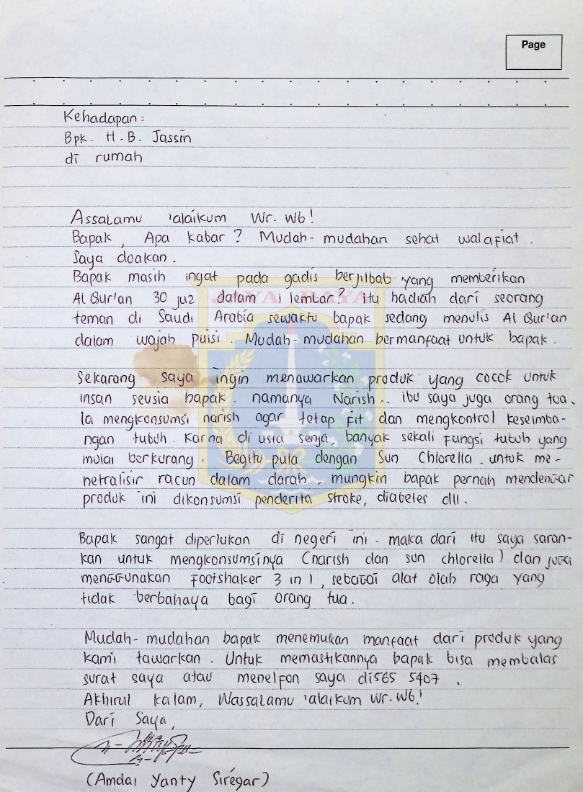 Page
Kehadapan:
Bpk. H.B. Jassin
di rumah
Assalamu 'alaikum Wr. Wb!
Bapak, Apa kabar? Mudah-mudahan sehat walafiat.
Saya doakan.
Bapak masih ingat pada gadis berjilbab yang memberikan
Al Qur'an 30 juz dalam 1 lembar? Itu hadiah dari seorang
teman di Saudi Arabia sewaktu bapak sedang menulis Al Qur'an
dalam wajah puisi. Mudah-mudahan bermanfaat untuk bapak.
Sekarang saya ingin menawarkan produk yang cocok untuk
insan seusia bapak namanya Narish.. ibu saya juga orang tua.
Ia mengkonsumsi narish agar tetap fit dan mengkontrol keseimba-
ngan tubuh. Karna di usia senja, banyak sekali fungsi tubuh yang
mulai berkurang. Begitu pula dengan Sun Chlorella. untuk me-
netralisir racun dalam darah.. mungkin bapak pernah mendengar
produk ini dikonsumsi penderita stroke, diabetes dll.
Bapak sangat diperlukan di negeri ini. maka dari itu saya saran-
kan untuk mengkonsumsinya (narish dan sun chlorella) dan juga
menggunakan footshaker 3 in 1, sebagai alat olah raga yang
tidak berbahaya bagi orang tua.
Mudah-mudahan bapak menemukan manfaat dari produk yang
kami tawarkan. Untuk memastikannya bapak bisa membalas
surat saya atau menelfon saya di 565 5907.
Akhirul kalam, Wassalamu 'alaikum Wr. Wb!
Dari Saya,
(Amdai Yanty Siregar)